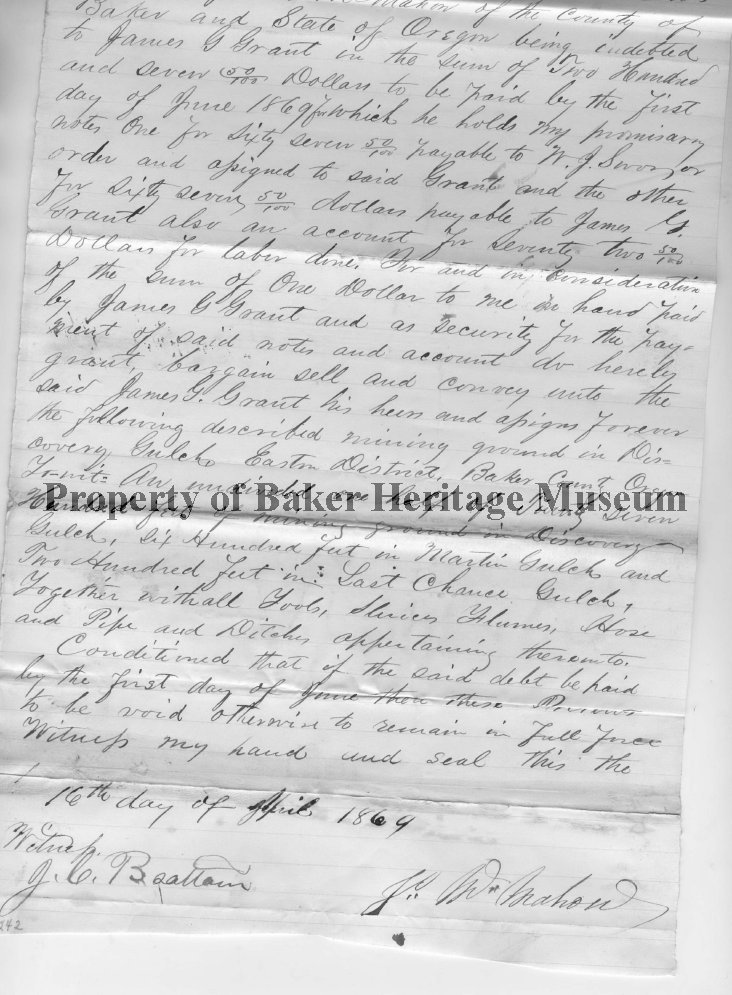 McMahon of the County of
Baker and State of Oregon being indebted
to James G Grant in the sum of Two Hundred
and seven 50/100 Dollars to be paid by the first
day of June 1869 for which he holds my promisary
notes One for sixty seven 50/100 payable to W. J. or
order and assigned to said Grant and the other
for sixty seven 50/100 dollars payable to James G.
Grant also an account for seventy two 50/100
Dollars for labor done. For and in consideration
of the sum of One Dollar to me in hand paid
by James G Grant and as security for the pay-
ment of said notes and account do hereby
grant, bargain sell and convey unto the
said James G. Grant his heirs and assigns forever
the following described mining ground in Dis-
covery Gulch, District, Baker County Oregon
To-wit: An undivided one half of Seven
Property of Baker Heritage Museum
Hundred feet of mining ground in Discovery
Gulch, Six Hundred feet in Martin Gulch and
Two Hundred feet in Last Chance Gulch,
Together with all Tools, Sluices Flumes, Hose
and Pipe and Ditches appertaining thereunto.
Conditioned that if the said debt be paid
by the first day of June then these
to be void otherwise to remain in full force
Witness my hand and seal this the
16th day of April 1869
Witness
J. C.
McMahon
242